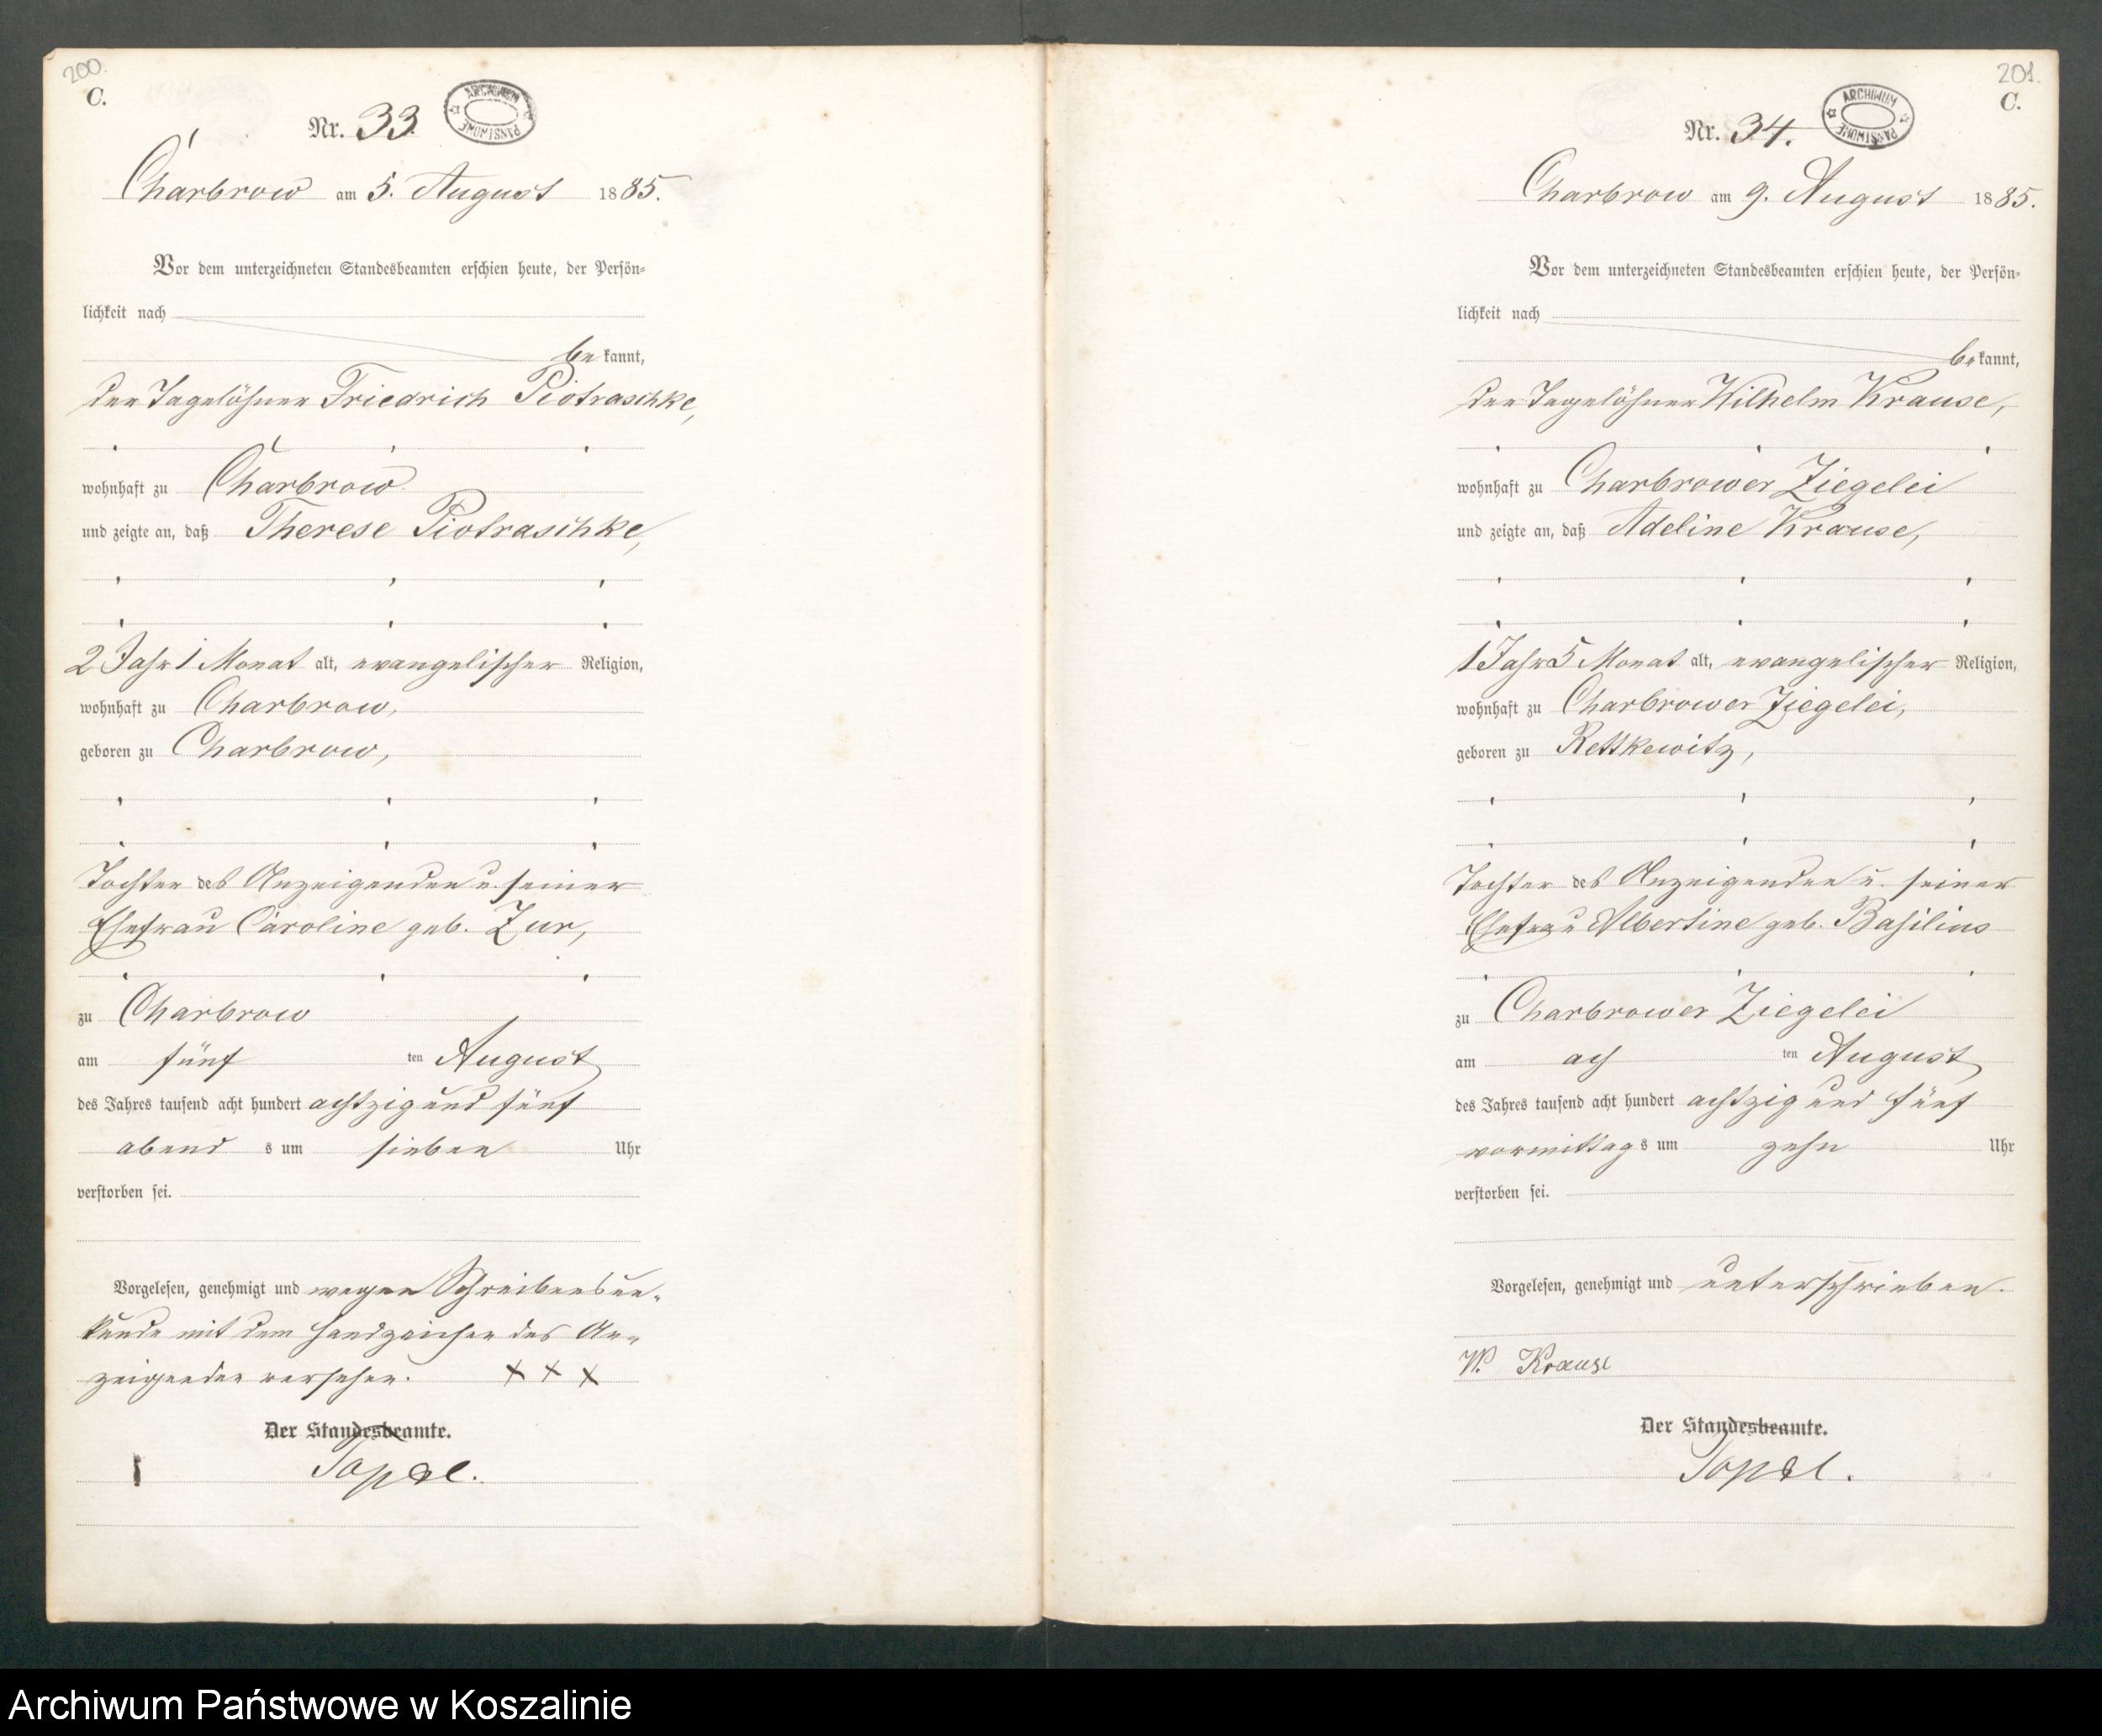 200.
C.
Nr. 33
ARCHIWUM PAŃSTWOWE
Charbrow am 5. August 1885.
Vor dem unterzeichneten Standesbeamten erschien heute, der Persön=
lichkeit nach
bekannt,
der Tagelöhner Friedrich Piotraschke,
wohnhaft zu Charbrow
und zeigte an, daß Therese Piotraschke,
2 Jahr 1 Monat alt, evangelischer Religion,
wohnhaft zu Charbrow,
geboren zu Charbrow,
Tochter des Anzeigenden u. seiner
Ehefrau Caroline geb. Zur,
zu Charbrow
am fünf ten August
des Jahres tausend acht hundert achtzig und fünf
abend s um sieben Uhr
verstorben sei.
Vorgelesen, genehmigt und wegen Schreibensun-
kunde mit dem Handzeichen des An-
zeigenden versehen. + + +
Der Standesbeamte.
201.
C.
Nr. 34.
ARCHIWUM PAŃSTWOWE
Charbrow am 9. August 1885.
Vor dem unterzeichneten Standesbeamten erschien heute, der Persön=
lichkeit nach
bekannt,
der Tagelöhner Wilhelm Krause,
wohnhaft zu Charbrower Ziegelei
und zeigte an, daß Adeline Krause,
1 Jahr 5 Monat alt, evangelischer Religion,
wohnhaft zu Charbrower Ziegelei,
geboren zu Rettkewitz,
Tochter des Anzeigenden u. seiner
Ehefrau Albertine geb. Basilius
zu Charbrower Ziegelei
am ach ten August
des Jahres tausend acht hundert achtzig und fünf
vormittag s um zehn Uhr
verstorben sei.
Vorgelesen, genehmigt und unterschrieben.
W. Krause
Der Standesbeamte.
Archiwum Państwowe w Koszalinie